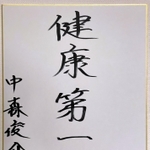 健康第一
中森俊介